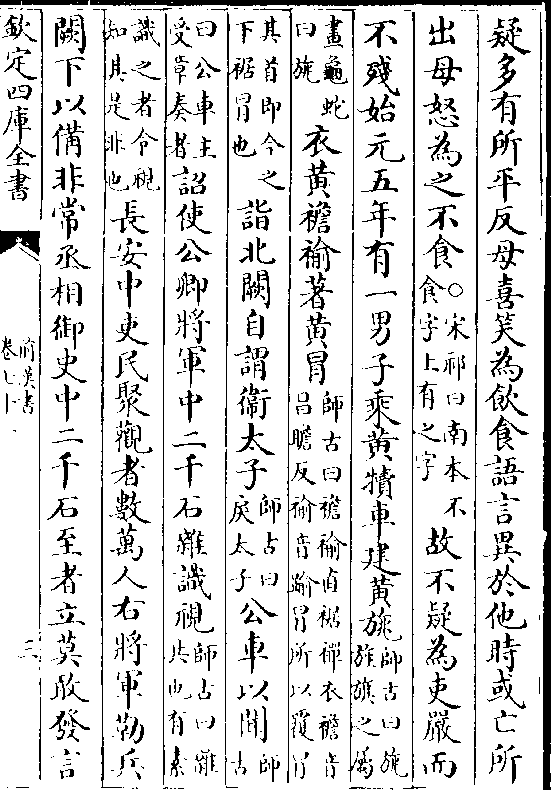 疑多有所平反母喜笑為飲食語言異於他時或亡所
出母怒為之不食○宋祁曰南本不食字上有之字故不疑為吏嚴而
不殘始元五年有一男子乗黄犢車建黄旐師古曰旐旌旗之屬
畫龜蛇曰旐衣黄襜褕著黄冒師古曰襜褕直裾襌衣襜音昌瞻反褕音踰冒所以覆冒
其首即今之下裾冒也詣北闕自謂衞太子師古曰戾太子公車以聞師古
曰公車主受章奏者詔使公卿將軍中二千石雜識視師古曰雜共也有素
識之者令視知其是非也長安中吏民聚觀者數萬人右將軍勒兵
闕下以備非常丞相御史中二千石至者立莫敢發言
欽定四庫全書
前漢書
卷七十
三